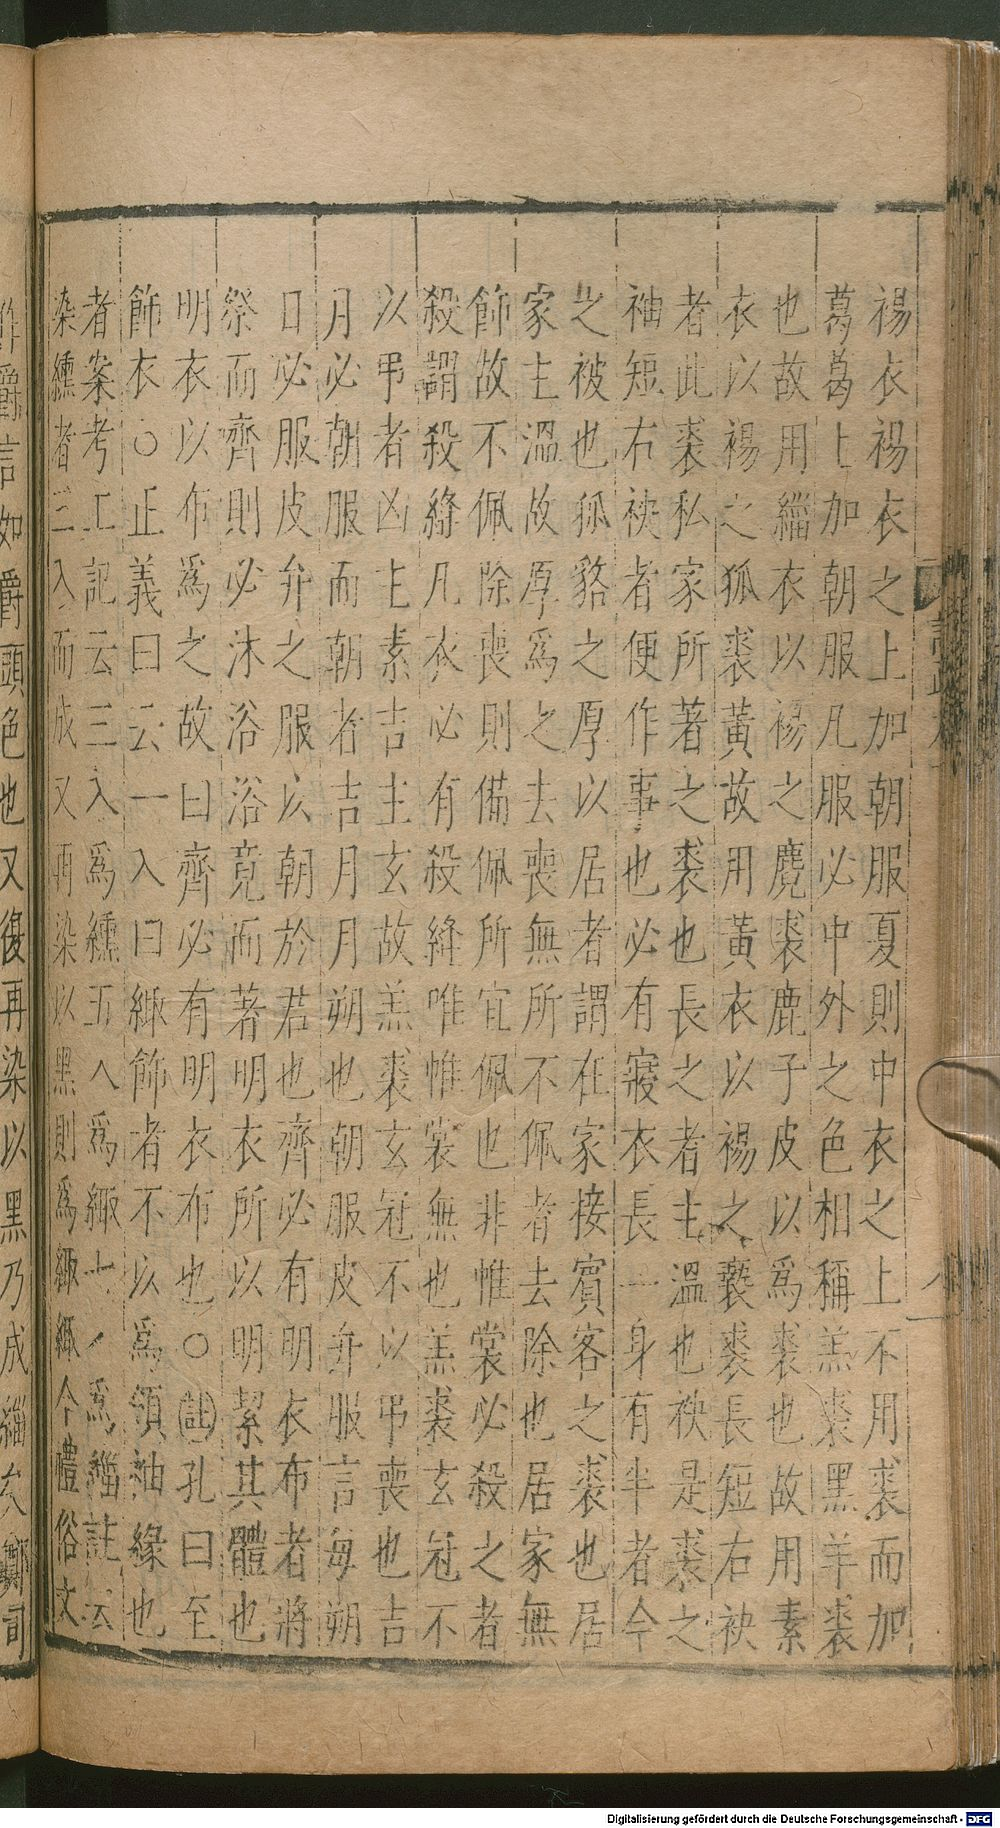 裼衣裼衣之上加朝服夏則中衣之上不用裘而加
葛葛上加朝服凡服必中外之色相稱羔裘黑羊裘
也故用緇衣以裼之麑裘鹿子皮以爲裘也故用素
衣以裼之狐裘黃故用黃衣以裼之褻裘長短右袂
者此裘私家所著之裘也長之者主溫也袂是裘之
袖短右袂者便作事也必有寢衣長一身有半者今
之被也狐貉之厚以居者謂在家接賓客之裘也居
家主溫故厚爲之去喪無所不佩者去除也居家無
飾故不佩除喪則備佩所宜佩也非惟裳必殺之者
殺謂殺縫凡衣必有殺縫唯惟裳無也羔裘玄冠不
以弔者凶主素吉主玄故羔裘玄冠不以弔喪也吉
月必朝服而朝者吉月月朔也朝服皮弁服言每朔
日必服皮弁之服以朝於君也齊必有明衣布者將
祭而齊則必沐浴浴竟而著明衣所以明絜其體也
明衣以布爲之故曰齊必有明衣布也○註孔曰至
飾衣○正義曰云一入曰緅飾者不以爲領袖緣也
者案考工記云三入爲纁五入爲緅七入爲緇註云
染纁者三入而成又再染以黑則爲緅緅今禮俗文
作爵言如爵頭色也又復再染以黑乃成緇矣鄭司
Digitalisierung gefördert durch die Deutsche Forschungsgemeinschaft - DFG